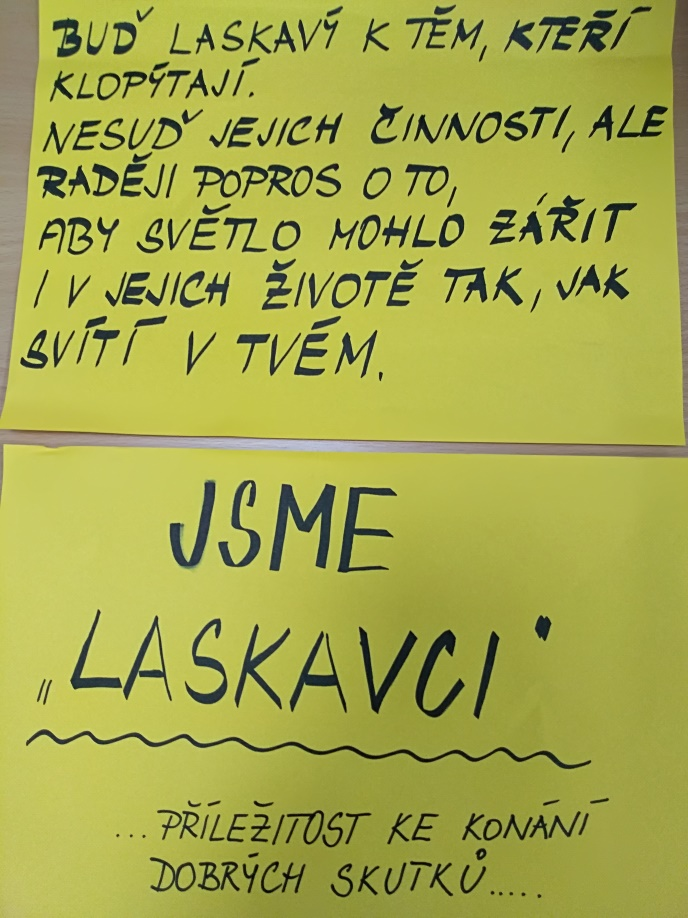 BUĎ LASKAVÝ K TĚM, KTEŘÍ
KLOPÝTAJÍ.
NESUĎ JEJICH ČINNOSTI, ALE
RADĚJI POPROS O TO,
ABY SVĚTLO MOHLO ZÁŘIT
I V JEJICH ŽIVOTĚ TAK, JAK
SVÍTÍ V TVÉM.
JSME
„LASKAVCI"
...PŘÍLEŽITOST KE KONÁNÍ
DOBRÝCH SKUTKŮ.....